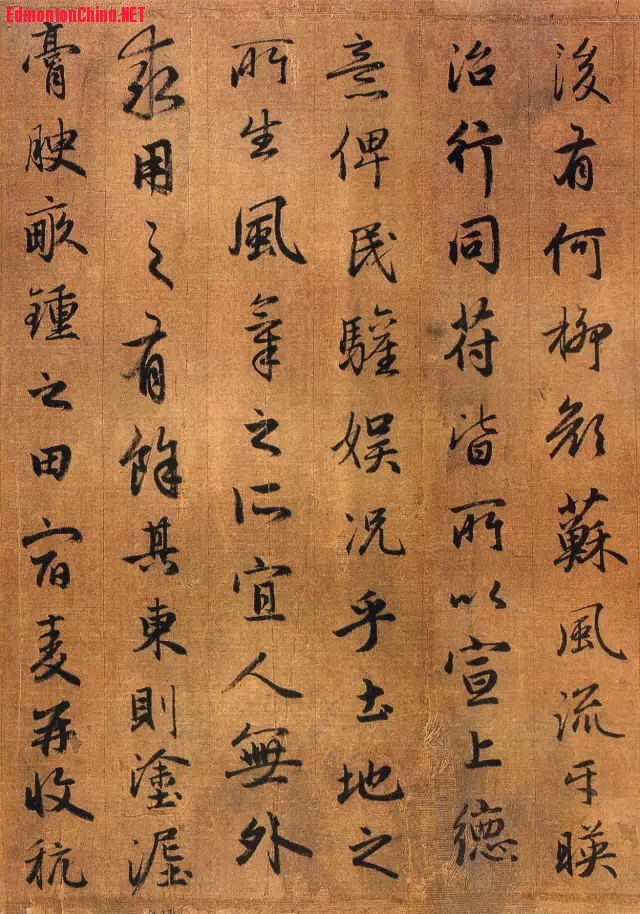 EdmontonChina.NET
後有何柳顏蘇風流互暎
治行同苻皆所以宣上德
意俾民驩娛況乎土地之
所生風氣之所宜人無外
求用之有餘其東則塗泥
膏腴畝鍾之田宿麥再收秔